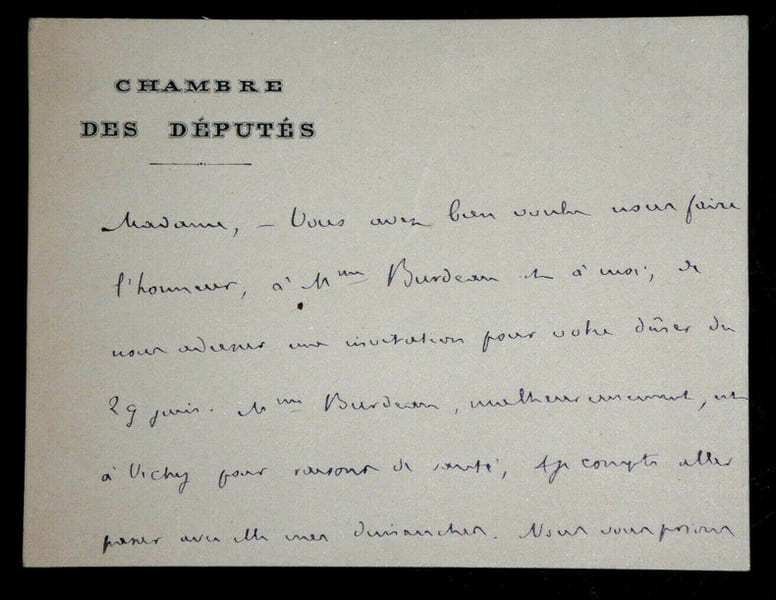 CHAMBRE
DES DÉPUTÉS
Madame, — Vous avez bien voulu nous faire
l'honneur, à Mme Burdeau et à moi, de
nous adresser une invitation pour votre dîner du
29 juin. Mme Burdeau, malheureusement, est
à Vichy pour raisons de santé, & je compte aller
passer avec elle mes dimanches. Nous vous prions